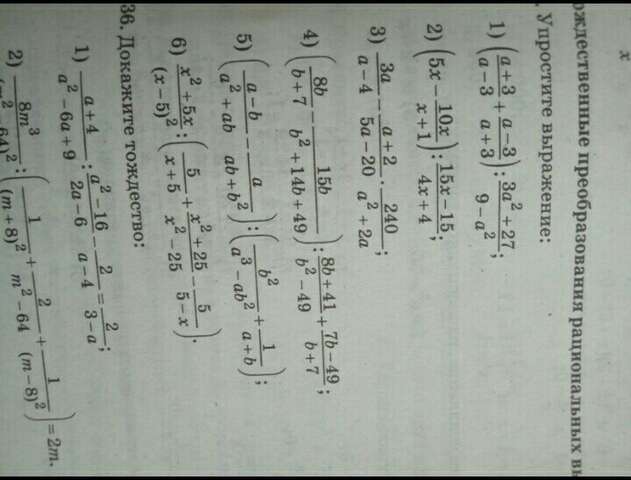 x
ождественные преобразования рациональных вы
. Упростите выражение:
1) ((a+3)/(a−3) + (a−3)/(a+3)) : (3a²+27)/(9−a²);
2) (5x − 10x/(x+1)) : (15x−15)/(4x+4);
3) 3a/(a−4) − (a+2)/(5a−20) · 240/(a²+2a);
4) (8b/(b+7) − 15b/(b²+14b+49)) : (8b+41)/(b²−49) + (7b−49)/(b+7);
5) ((a−b)/(a²+ab) − a/(ab+b²)) : (b²/(a³−ab²) + 1/(a+b));
6) (x²+5x)/(x−5)² : (5/(x+5) + (x²+25)/(x²−25) − 5/(5−x)).
36. Докажите тождество:
1) (a+4)/(a²−6a+9) : (a²−16)/(2a−6) − 2/(a−4) = 2/(3−a);
2) 8m³/(m²−64)² : (1/(m+8)² + 2/(m²−64) + 1/(m−8)²) = 2m.